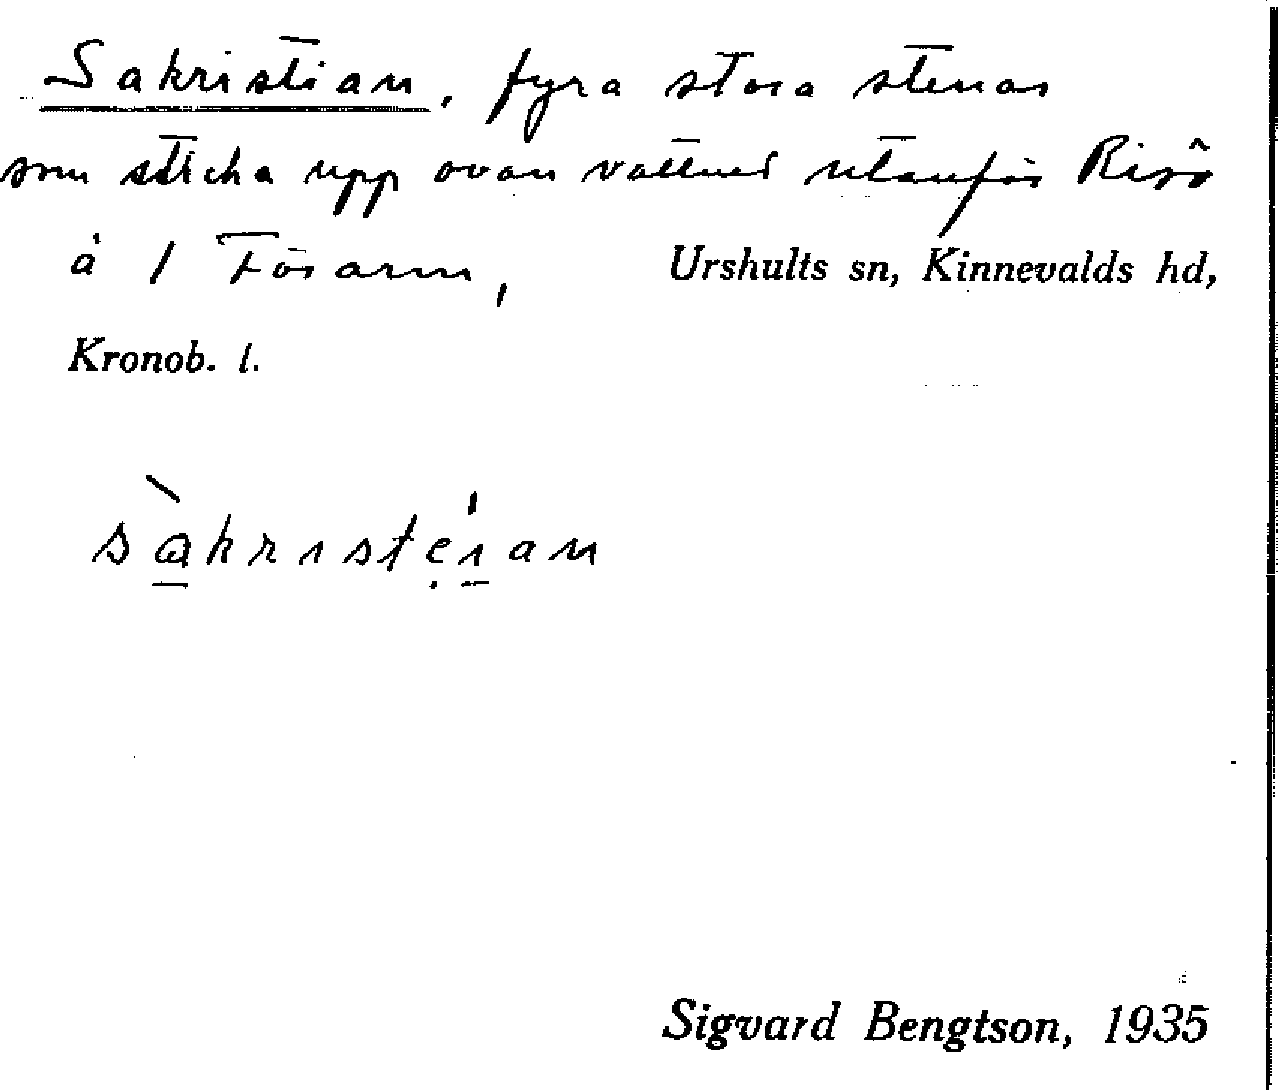 Sakristian, fyra stora stenar
som sticka upp ovan vattnet utanför Risö
å 1 Tosarm, Urshults sn, Kinnevalds hd,
Kronob. l.
sàkristẹian
Sigvard Bengtson, 1935